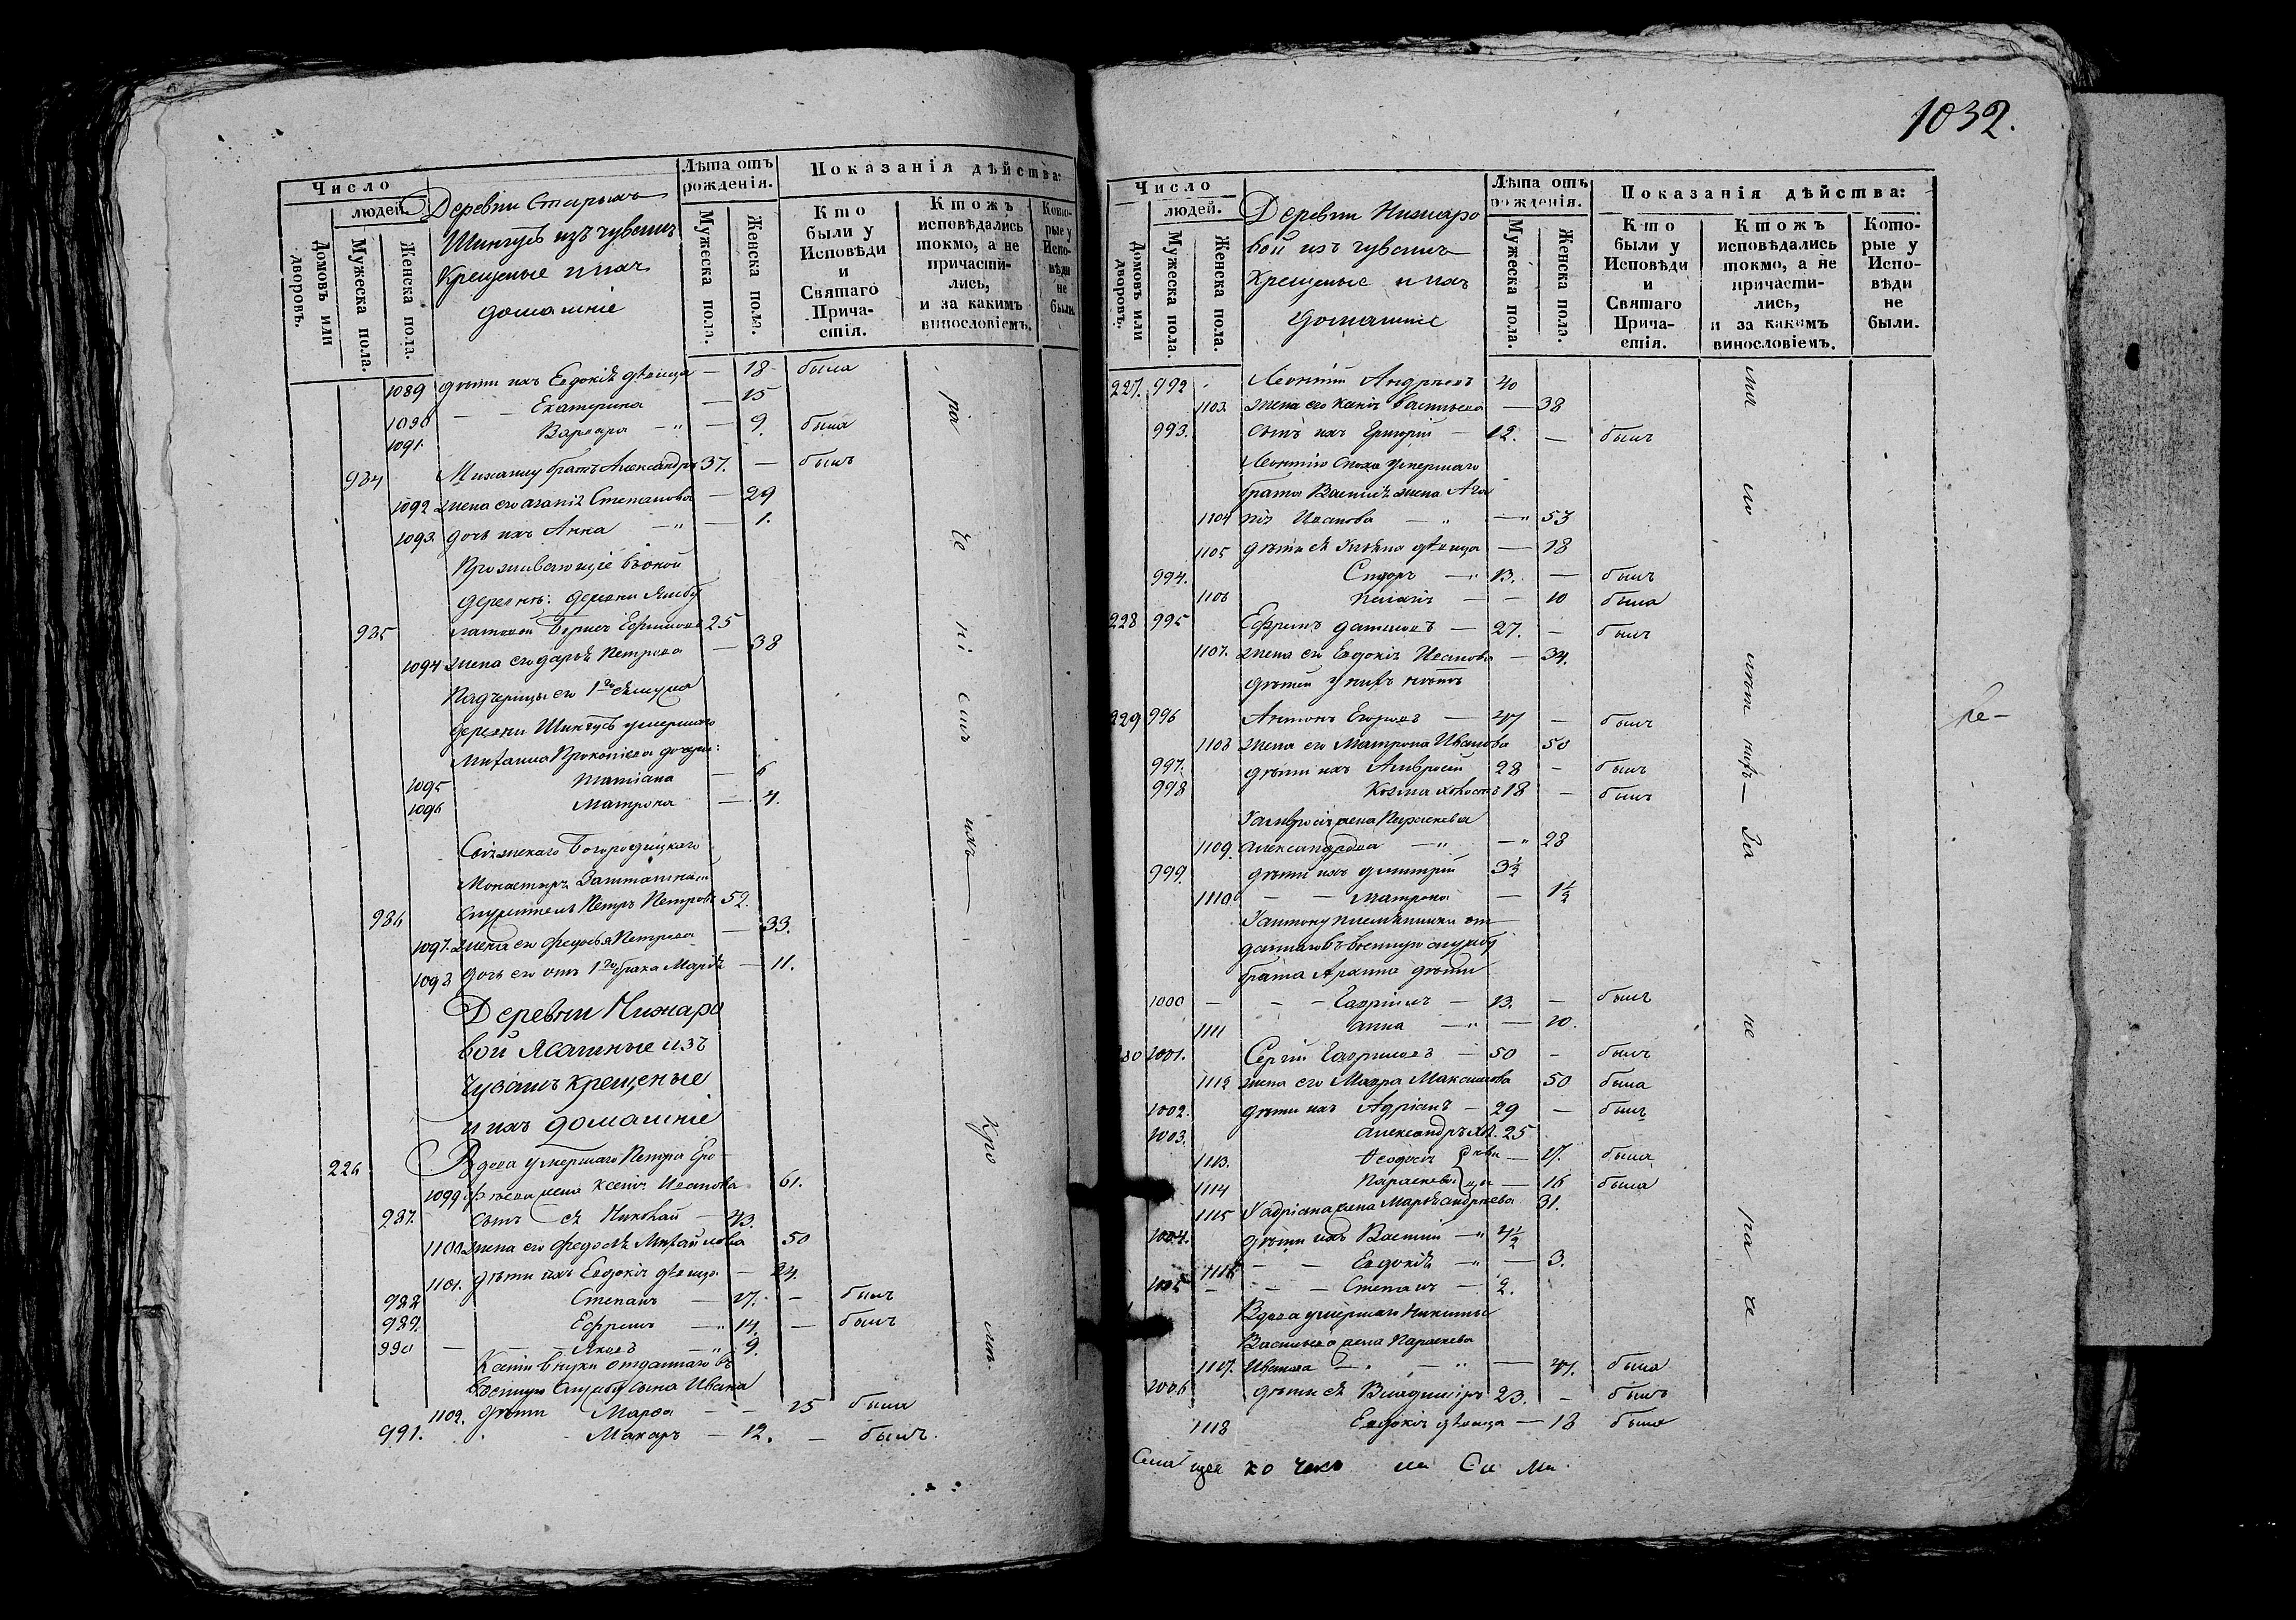 1032.
Число
людей.
Домовъ или дворовъ.
Мужеска пола.
Женска пола.
Деревни Старыхъ
Шингусь изъ чувашъ
крещеные и ихъ
домашніе
Лѣта отъ рожденія.
Мужеска пола.
Женска пола.
Показанія дѣйства:
Кто были у Исповѣди и Святаго Причастія.
Ктожъ исповѣдались токмо, а не причастились, и за какимъ винословіемъ.
Которые у Исповѣди не были.
1089 дѣти ихъ Евдокія дѣвица — 18 была
1090 — — Екатерина — 15
1091. Варвара — — 9. была
984 Михаилу братъ Александръ 37. — былъ
1092 жена его Агапія Степанова — 29
1093. дочь ихъ Анна — — 1.
Проживающіе въ оной
деревнѣ: деревни
985 Борисъ Ефимовъ 25
1094 жена его Дарья Петрова — 38
Падчерицы его 1го мужа
деревни Шингусь умершаго
Михаила Прокопіева дочери:
1095 Татіана — 6
1096 Матрона — 4.
Свіяжскаго Богородицкаго
Монастыря Заштатнаго
986 служитель Петръ Петровъ 52.
1097. жена его Федосья Петрова — 33.
1098 дочь его отъ 1го брака Марія — 11.
Деревни Нижаро
вой Ясашные изъ
Чувашъ крещеные
и ихъ домашніе
226 Вдова умершаго Петра Еро
1099 фѣева жена Ксенія Иванова 61.
987. сынъ ея Николай — 43.
1100 жена его Федосья Михайлова 50
1101. дѣти ихъ Евдокія дѣвица — 24.
988 Степанъ — 17. — былъ
989. Ефремъ — 14. — былъ
990 — — Яковъ — 9.
Ксеніи внуки отданнаго въ
военную службу сына Ивана
1102. дѣти Марѳа — — 15 была
991. Макаръ — 12. — былъ.
Число
людей.
Домовъ или дворовъ.
Мужеска пола.
Женска пола.
Деревни Нижаро
вой изъ чувашъ
Крещеные и ихъ
домашніе
Лѣта отъ рожденія.
Мужеска пола.
Женска пола.
Показанія дѣйства:
Кто были у Исповѣди и Святаго Причастія.
Ктожъ исповѣдались токмо, а не причастились, и за какимъ винословіемъ.
Которые у Исповѣди не были.
227. 992 Леонтій Андреевъ 40
1103. жена его Ксенія Васильева — 38
993. сынъ ихъ Григорій — 12. — былъ
Леонтію сноха умершаго
брата Василья жена Ага
1104 пія Иванова — — 53
1105 дѣти ея Ульяна дѣвица — 18
994. Сидоръ — 13. — былъ
1106 Пелагія — — 10 была
228 995 Ефремъ Даниловъ — 27. — былъ
1107. жена его Евдокія Иванова — 34.
дѣтей у нихъ нѣтъ
229 996 Антонъ Егоровъ — 47 — былъ
1108 жена его Матрона Иванова 50
997. дѣти ихъ Амвросій 28 — былъ
998 Козма холостъ 18 — былъ
У Амвросія жена Параскева
1109. Александрова — — 28
999. дѣти ихъ Димитрій 3½
1110. — — Матрона — 1½
У Антона племянники от
даннаго въ военную службу
брата дѣти
1000 — — Гавріилъ — 13. — былъ
1111 Анна — — 10.
230 1001. Сергій Гавриловъ — 50 — былъ
1112 жена его Мавра Максимова 50 была
1002. дѣти ихъ Адріанъ — 29 — былъ
1003. Александръ хол. 25
1113. Ѳеодосія — 17. была
1114 Параскева — 16 была
1115 У Адріана жена Марья Андреева 31.
1004. дѣти ихъ Василій — 4½
1116 — — Евдокія — — 3.
1005 — — Степанъ — 2.
Вдова умершаго Никиты
Васильева жена Параскева
1117. Иванова — — — 47. была
1006 дѣти ея Владиміръ 23. — былъ
1118 Евдокія дѣвица — 18 была